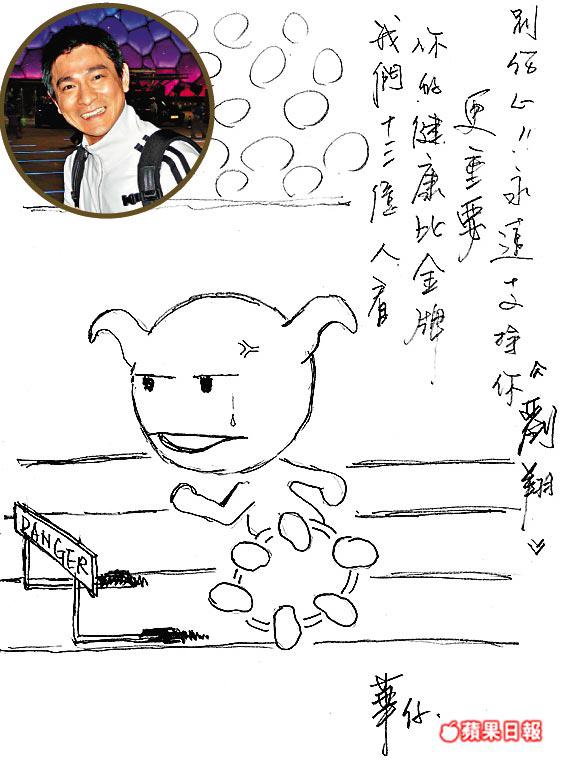 我們十三億人看
你的健康比金牌
更重要
別傷心!!永遠支持你《劉翔》
DANGER
華仔.
蘋果日報